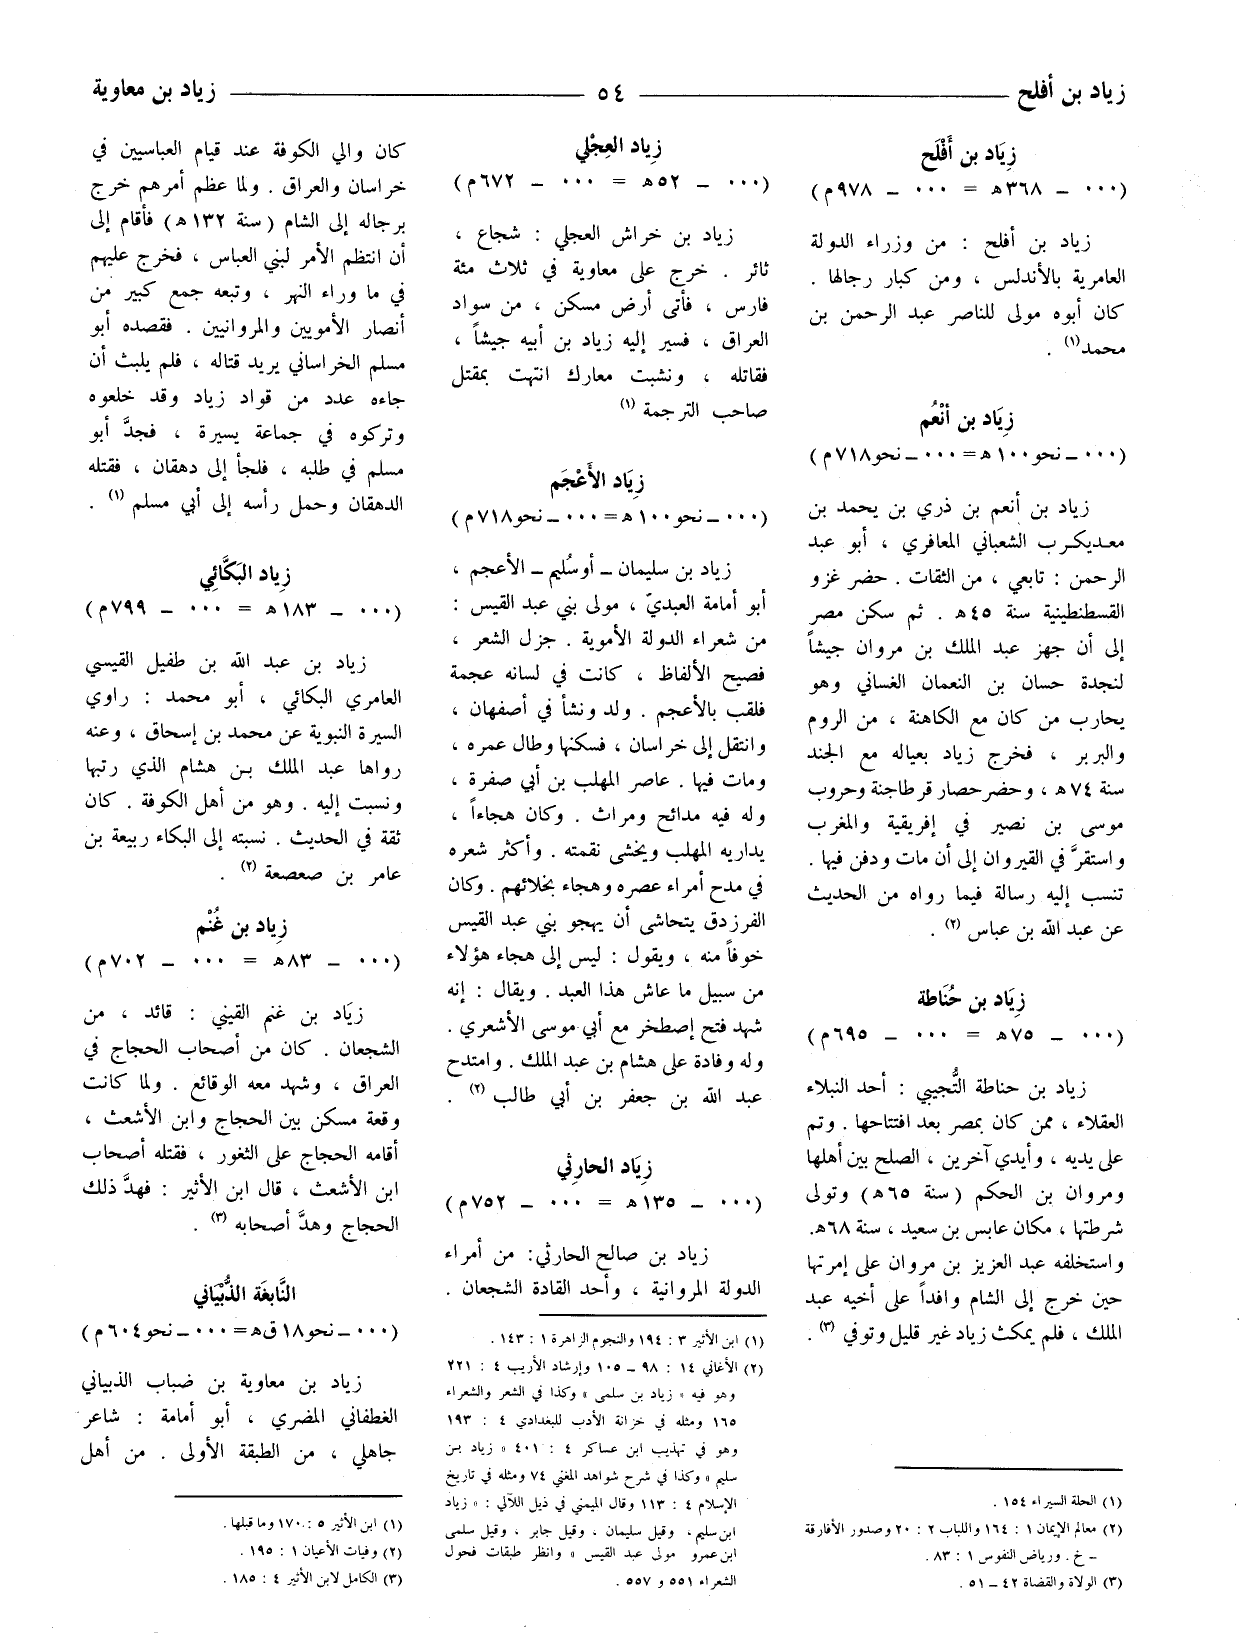 زياد بن أفلح
٥٤
زياد بن معاوية
زِيَاد بن أَفْلَح
(٠٠٠ ـ ٣٦٨هـ = ٠٠٠ ـ ٩٧٨م)
زياد بن أفلح : من وزراء الدولة
العامرية بالأندلس ، ومن كبار رجالها .
كان أبوه مولى للناصر عبد الرحمن بن
محمد(١) .
زِيَاد بن أَنْعُم
(٠٠٠ ـ نحو ١٠٠هـ = ٠٠٠ ـ نحو ٧١٨م)
زياد بن أنعم بن ذري بن يحمد بن
معديكرب الشعباني المعافري ، أبو عبد
الرحمن : تابعي ، من الثقات . حضر غزو
القسطنطينية سنة ٤٥هـ . ثم سكن مصر
إلى أن جهز عبد الملك بن مروان جيشاً
لنجدة حسان بن النعمان الغساني وهو
يحارب من كان مع الكاهنة ، من الروم
والبربر ، فخرج زياد بعياله مع الجند
سنة ٧٤هـ ، وحضر حصار قرطاجنة وحروب
موسى بن نصير في إفريقية والمغرب
واستقرَّ في القيروان إلى أن مات ودفن فيها .
تنسب إليه رسالة فيما رواه من الحديث
عن عبد الله بن عباس (٢) .
زِيَاد بن حُنَاطة
(٠٠٠ ـ ٧٥هـ = ٠٠٠ ـ ٦٩٥م)
زياد بن حناطة التُّجيبي : أحد النبلاء
العقلاء ، ممن كان بمصر بعد افتتاحها . وتم
على يديه ، وأيدي آخرين ، الصلح بين أهلها
ومروان بن الحكم (سنة ٦٥هـ) وتولى
شرطتها ، مكان عابس بن سعيد ، سنة ٦٨هـ.
واستخلفه عبد العزيز بن مروان على إمرتها
حين خرج إلى الشام وافداً على أخيه عبد
الملك ، فلم يمكث زياد غير قليل وتوفي (٣) .
(١) الحلة السيراء ١٥٤ .
(٢) معالم الإيمان ١ : ١٦٤ واللباب ٢ : ٢٠ وصدور الأفارقة
ـ خ . ورياض النفوس ١ : ٨٣ .
(٣) الولاة والقضاة ٤٢ ـ ٥١ .
زِيَاد العِجْلي
(٠٠٠ ـ ٥٢هـ = ٠٠٠ ـ ٦٧٢م)
زياد بن خراش العجلي : شجاع ،
ثائر . خرج على معاوية في ثلاث مئة
فارس ، فأتى أرض مسكن ، من سواد
العراق ، فسير إليه زياد بن أبيه جيشاً ،
فقاتله ، ونشبت معارك انتهت بمقتل
صاحب الترجمة (١)
زِيَاد الأَعْجَم
(٠٠٠ ـ نحو ١٠٠هـ = ٠٠٠ ـ نحو ٧١٨م)
زياد بن سليمان ـ أو سُليم ـ الأعجم ،
أبو أمامة العبديّ ، مولى بني عبد القيس :
من شعراء الدولة الأموية . جزل الشعر ،
فصيح الألفاظ ، كانت في لسانه عجمة
فلقب بالأعجم . ولد ونشأ في أصفهان ،
وانتقل إلى خراسان ، فسكنها وطال عمره ،
ومات فيها . عاصر المهلب بن أبي صفرة ،
وله فيه مدائح ومراث . وكان هجاءاً ،
يداريه المهلب ويخشى نقمته . وأكثر شعره
في مدح أمراء عصره وهجاء بخلائهم . وكان
الفرزدق يتحاشى أن يهجو بني عبد القيس
خوفاً منه ، ويقول : ليس إلى هجاء هؤلاء
من سبيل ما عاش هذا العبد . ويقال : إنه
شهد فتح إصطخر مع أبي موسى الأشعري .
وله وفادة على هشام بن عبد الملك . وامتدح
عبد الله بن جعفر بن أبي طالب (٢) .
زِيَاد الحارِثي
(٠٠٠ ـ ١٣٥هـ = ٠٠٠ ـ ٧٥٢م)
زياد بن صالح الحارثي: من أمراء
الدولة المروانية ، وأحد القادة الشجعان .
(١) ابن الأثير ٣ : ١٩٤ والنجوم الزاهرة ١ : ١٤٣ .
(٢) الأغاني ١٤ : ٩٨ ـ ١٠٥ وإرشاد الأريب ٤ : ٢٢١
وهو فيه « زياد بن سلمى » وكذا في الشعر والشعراء
١٦٥ ومثله في خزانة الأدب للبغدادي ٤ : ١٩٣
وهو في تهذيب ابن عساكر ٤ : ٤٠١ « زياد بن
سليم » وكذا في شرح شواهد المغني ٧٤ ومثله في تاريخ
الإسلام ٤ : ١١٣ وقال الميمني في ذيل اللآلي : « زياد
ابن سليم ، وقيل سليمان ، وقيل جابر ، وقيل سلمى
ابن عمرو مولى عبد القيس » وانظر طبقات فحول
الشعراء ٥٥١ و ٥٥٧ .
كان والي الكوفة عند قيام العباسيين في
خراسان والعراق . ولما عظم أمرهم خرج
برجاله إلى الشام (سنة ١٣٢هـ) فأقام إلى
أن انتظم الأمر لبني العباس ، فخرج عليهم
في ما وراء النهر ، وتبعه جمع كبير من
أنصار الأمويين والمروانيين . فقصده أبو
مسلم الخراساني يريد قتاله ، فلم يلبث أن
جاءه عدد من قواد زياد وقد خلعوه
وتركوه في جماعة يسيرة ، فجدَّ أبو
مسلم في طلبه ، فلجأ إلى دهقان ، فقتله
الدهقان وحمل رأسه إلى أبي مسلم (١) .
زِيَاد البَكَّائِي
(٠٠٠ ـ ١٨٣هـ = ٠٠٠ ـ ٧٩٩م)
زياد بن عبد الله بن طفيل القيسي
العامري البكائي ، أبو محمد : راوي
السيرة النبوية عن محمد بن إسحاق ، وعنه
رواها عبد الملك بن هشام الذي رتبها
ونسبت إليه . وهو من أهل الكوفة . كان
ثقة في الحديث . نسبته إلى البكاء ربيعة بن
عامر بن صعصعة (٢) .
زِيَاد بن غُنْم
(٠٠٠ ـ ٨٣هـ = ٠٠٠ ـ ٧٠٢م)
زيَاد بن غنم القيني : قائد ، من
الشجعان . كان من أصحاب الحجاج في
العراق ، وشهد معه الوقائع . ولما كانت
وقعة مسكن بين الحجاج وابن الأشعث ،
أقامه الحجاج على الثغور ، فقتله أصحاب
ابن الأشعث ، قال ابن الأثير : فهدَّ ذلك
الحجاج وهدَّ أصحابه (٣) .
النَّابغَة الذُّبْيَاني
(٠٠٠ ـ نحو ١٨ ق هـ = ٠٠٠ ـ نحو ٦٠٤م)
زياد بن معاوية بن ضباب الذبياني
الغطفاني المضري ، أبو أمامة : شاعر
جاهلي ، من الطبقة الأولى . من أهل
(١) ابن الأثير ٥ : ١٧٠ وما قبلها .
(٢) وفيات الأعيان ١ : ١٩٥ .
(٣) الكامل لابن الأثير ٤ : ١٨٥ .